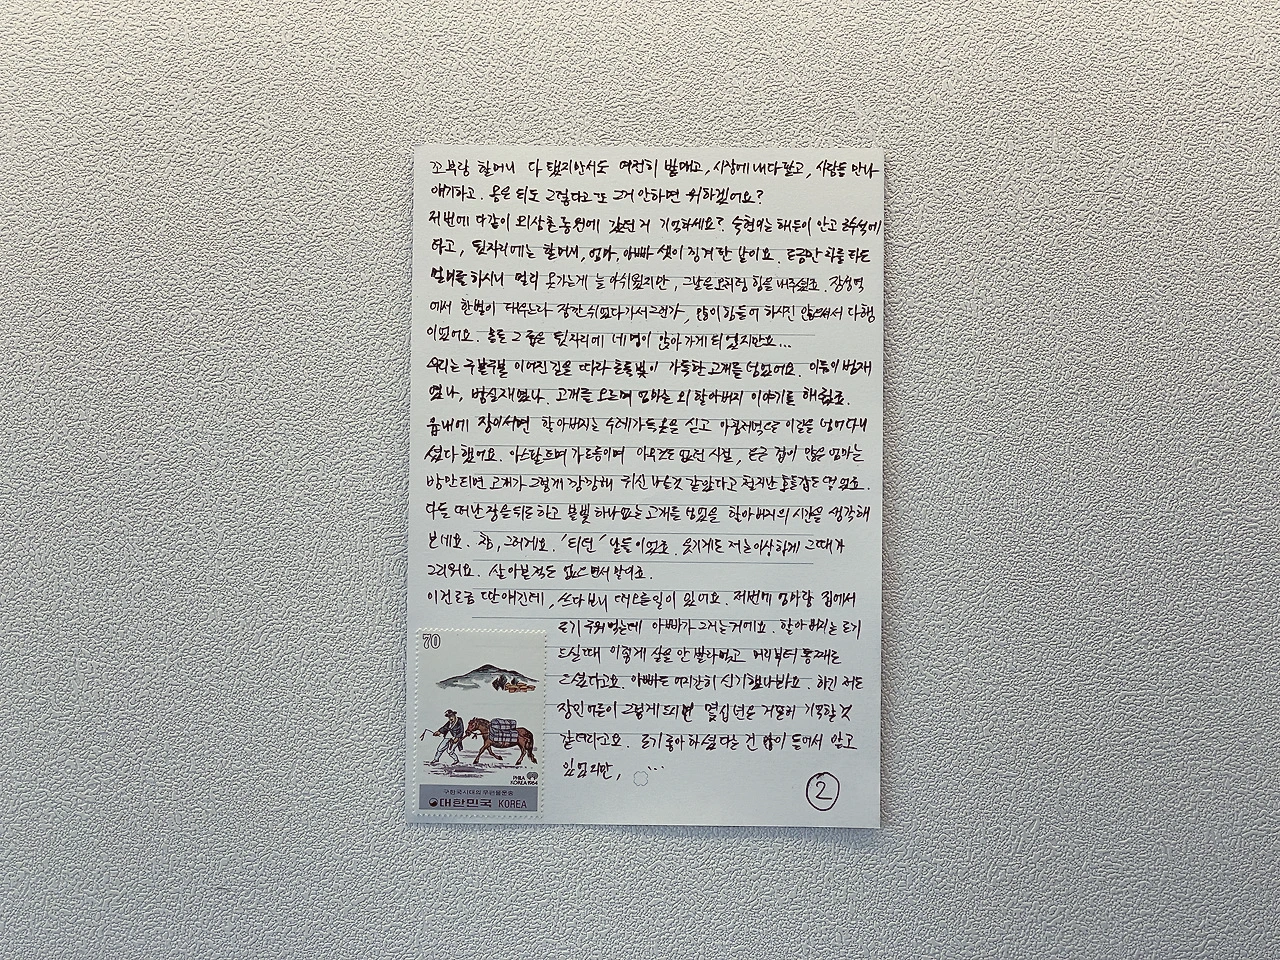 꼬부랑 할머니 다 됐지만서도 여전히 밭매고, 시장에 내다팔고, 사람들 만나
얘기하고. 몸은 되도 그렇다고 또 그거 안하면 뭐하겠어요?
저번에 다같이 외삼촌 농원에 갔던거 기억하세요? 숙현이는 해든이 안고 조수석에
타고, 뒷자리에는 할머니, 엄마, 아빠 셋이 낑겨탄 날이요. 조금만 차를 타도
멀미를 하시니 멀리 못가는게 늘 아쉬웠지만, 그날은 모처럼 힘을 내주셨죠. 장성역
에서 한범이 태우느라 잠깐 쉬었다가서 그런가, 많이 힘들어 하시진 않으셔서 다행
이었어요. 좁은 뒷자리에 네명이 앉아 가게 되었지만요...
우리는 구불구불 이어진 길을 따라 초록빛이 가득한 고개를 넘었어요. 이름이 밤재
였나, 밤실재였나. 고개를 오르며 엄마는 외할아버지 이야기를 해줬죠.
읍내에 장이서면 할아버지는 수레가득 옷을 싣고 아침저녁으로 이길을 넘어다니
셨다 했어요. 아스팔트며 가로등이며 아무것도 없던 시절, 조금 겁이 많은 엄마는
밤만되면 고개가 그렇게 깜깜해 귀신 나올것 같았다고
다들 떠난 장을 뒤로하고 불빛 하나 없는 고개를 넘었을 할아버지의 시간을 생각해
보네요. 참, 그러게요. '되던' 날들이었죠. 웃기게도 저는 이상하게 그때가
그리워요. 살아본적도 없으면서 말이죠.
이건 조금 딴 얘긴데, 쓰다보니 떠오른일이 있어요. 저번에 엄마랑 집에서
조기 구워먹는데 아빠가 그러는거에요. 할아버지는 조기
드실때 이렇게 살을 안 발라먹고 머리부터 통째로
드셨다고요. 아빠도 어지간히 신기했나봐요. 하긴 저도
장인어른이 그렇게 드시면 몇십년은 거뜬히 기억할 것
같더라고요. 조기 좋아하셨다는 건 많이 들어서 알고
있었지만, ...
2
70
PHILA
KOREA 1984
구한국시대의 우편물운송
대한민국 KOREA